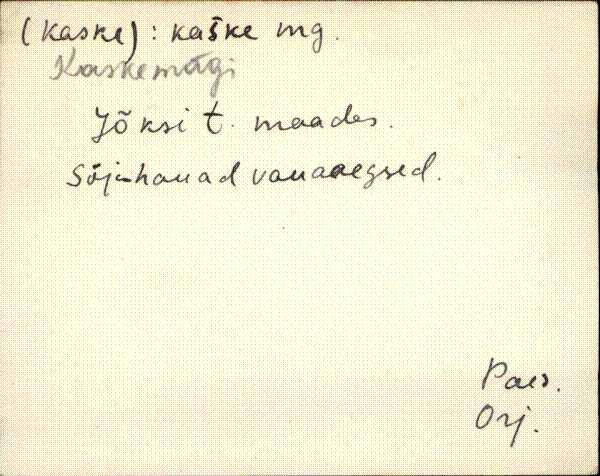 (kaske) : kaške mg.
Kaskemägi
Jõksi t. maades.
Sõjahauad vanaaegsed.
Paes.
Orj.